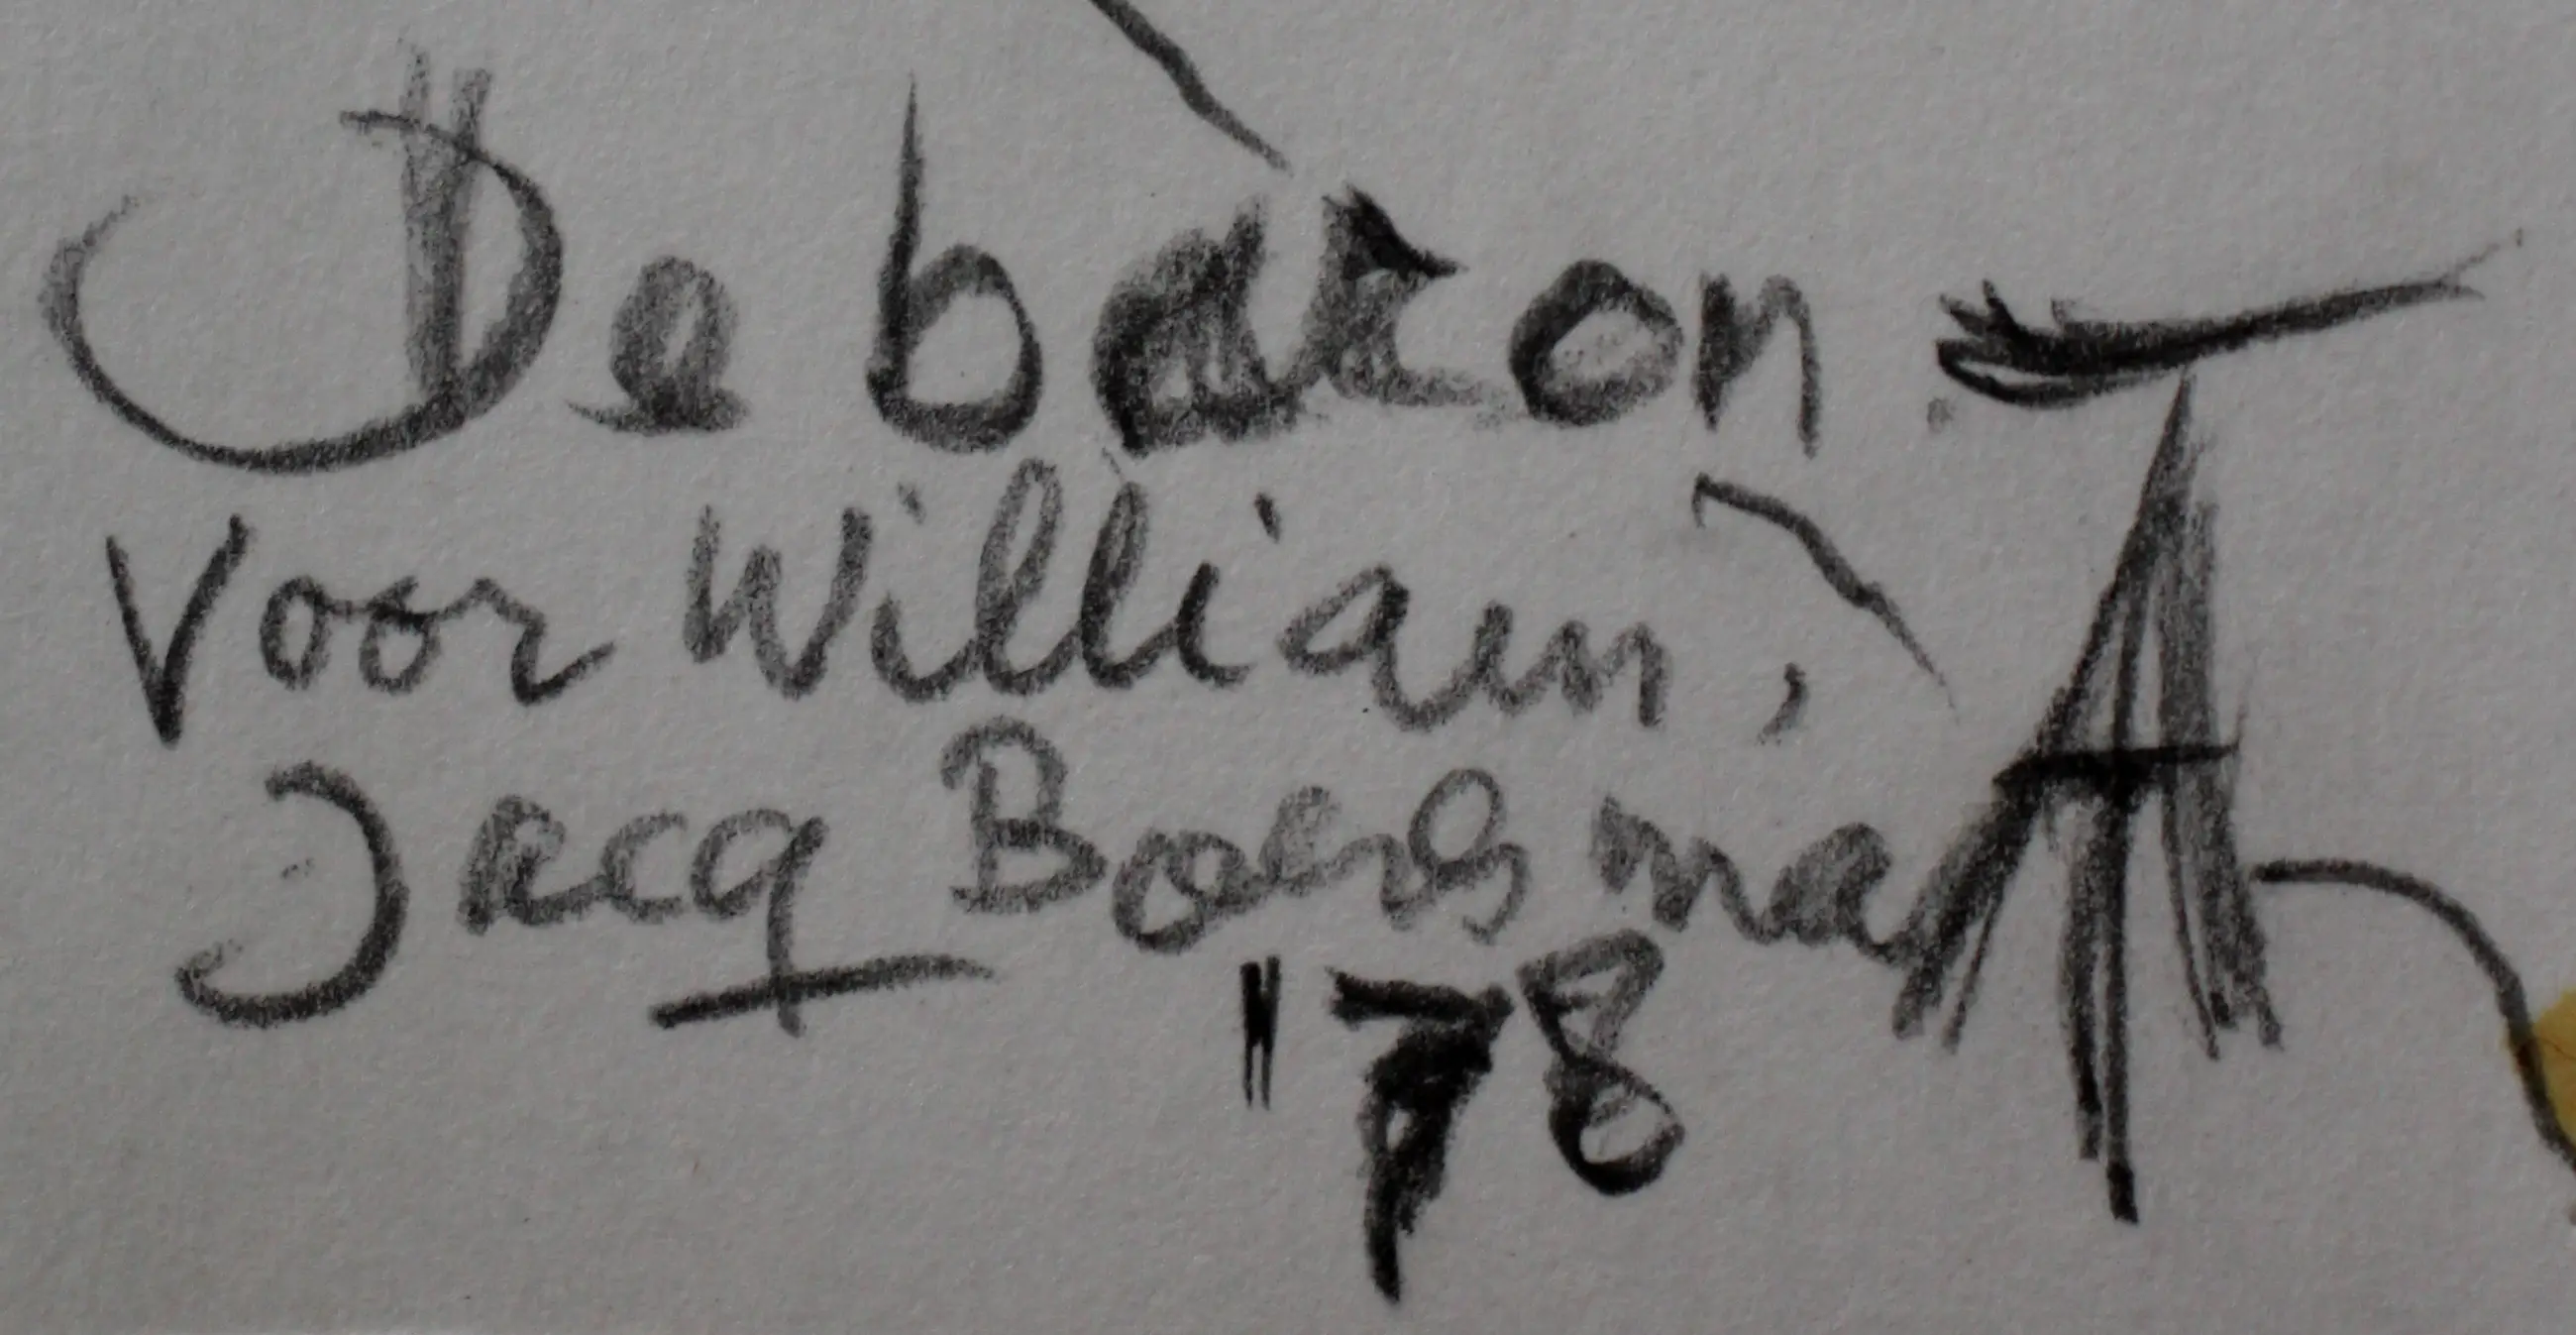 De baron
voor William,
Jacq Boersma
"78